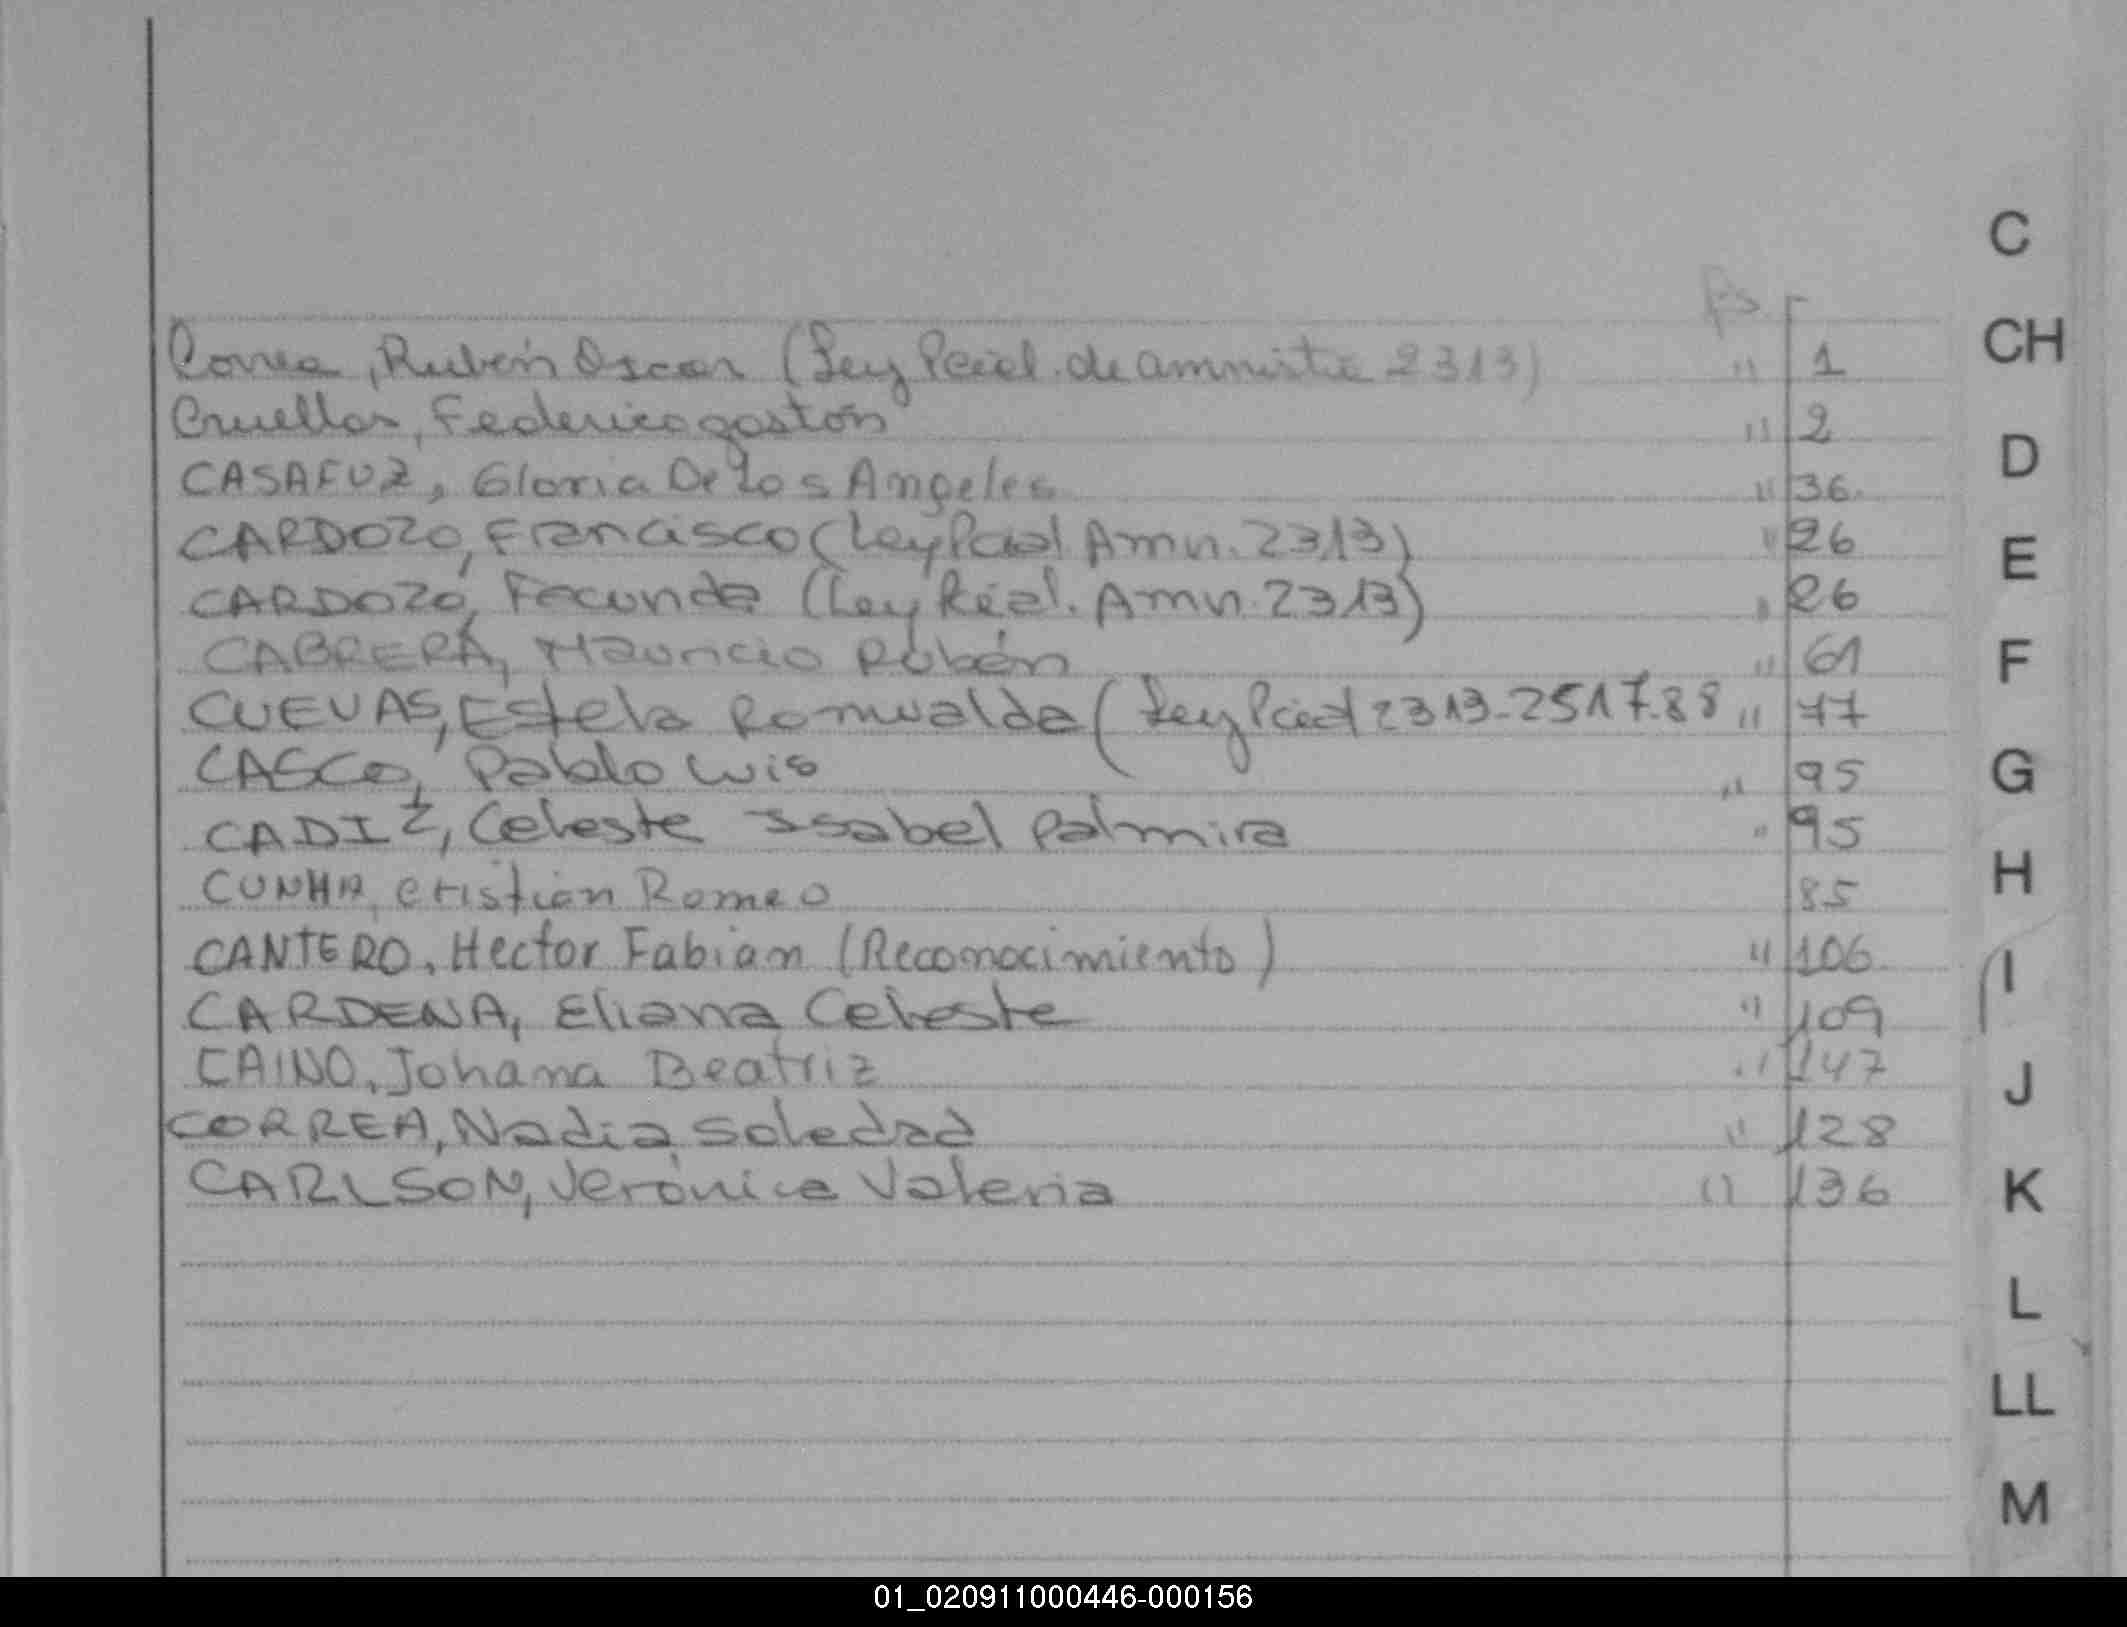 fs.
Correa, Rubén Oscar (Ley Pcial. de amnistia 2313) " 1
Cruellas, Federico gastón " 2
CASAFUZ, Gloria De Los Angeles " 36
CARDOZO, Francisco (Ley Pcial. Amn. 2313) " 26
CARDOZO, Facundo (Ley Pcial. Amn. 2313) " 26
CABRERA, Mauricio Rubén " 61
CUEVAS, Estela Romualda (Ley Pcial 2313-2517-88 " 77
CASCO, Pablo Luis " 95
CADIZ, Celeste Isabel Palmira " 95
CUNHA, Cristian Romeo 85
CANTERO, Hector Fabian (Reconocimiento) " 106
CARDENA, Eliana Celeste " 109
CAINO, Johana Beatriz " 147
CORREA, Nadia Soledad " 128
CARLSON, Verónica Valeria " 136
C
CH
D
E
F
G
H
I
J
K
L
LL
M
01_020911000446-000156